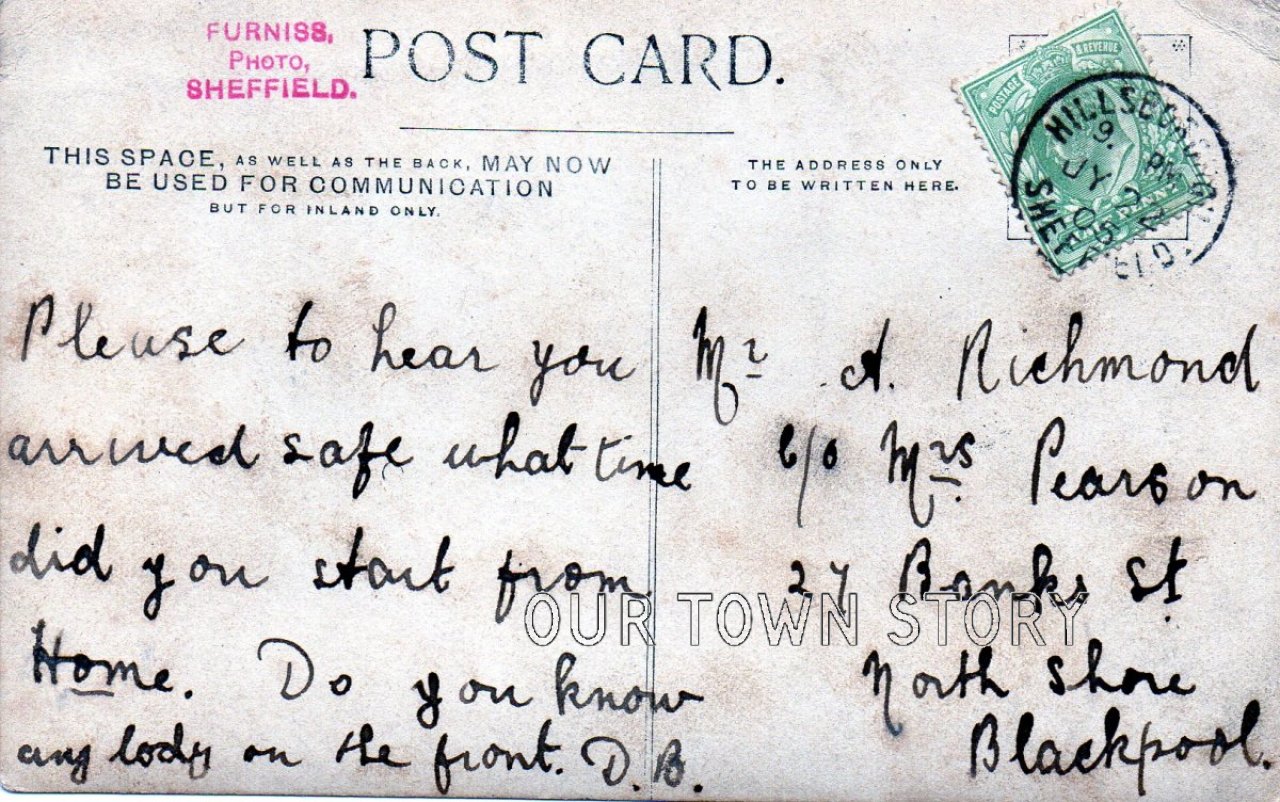 FURNISS,
PHOTO,
SHEFFIELD.
POST CARD.
THIS SPACE, AS WELL AS THE BACK, MAY NOW
BE USED FOR COMMUNICATION
BUT FOR INLAND ONLY.
THE ADDRESS ONLY
TO BE WRITTEN HERE.
POSTAGE & REVENUE
HILLSBOROUGH
9. PM
JY 22
05
SHEFFIELD.
Please to hear you
arrived safe what time
did you start from
Home. Do you know
any body on the front. D.B.
Mr A. Richmond
c/o Mrs Pearson
27 Banks St
North Shore
Blackpool.
OUR TOWN STORY